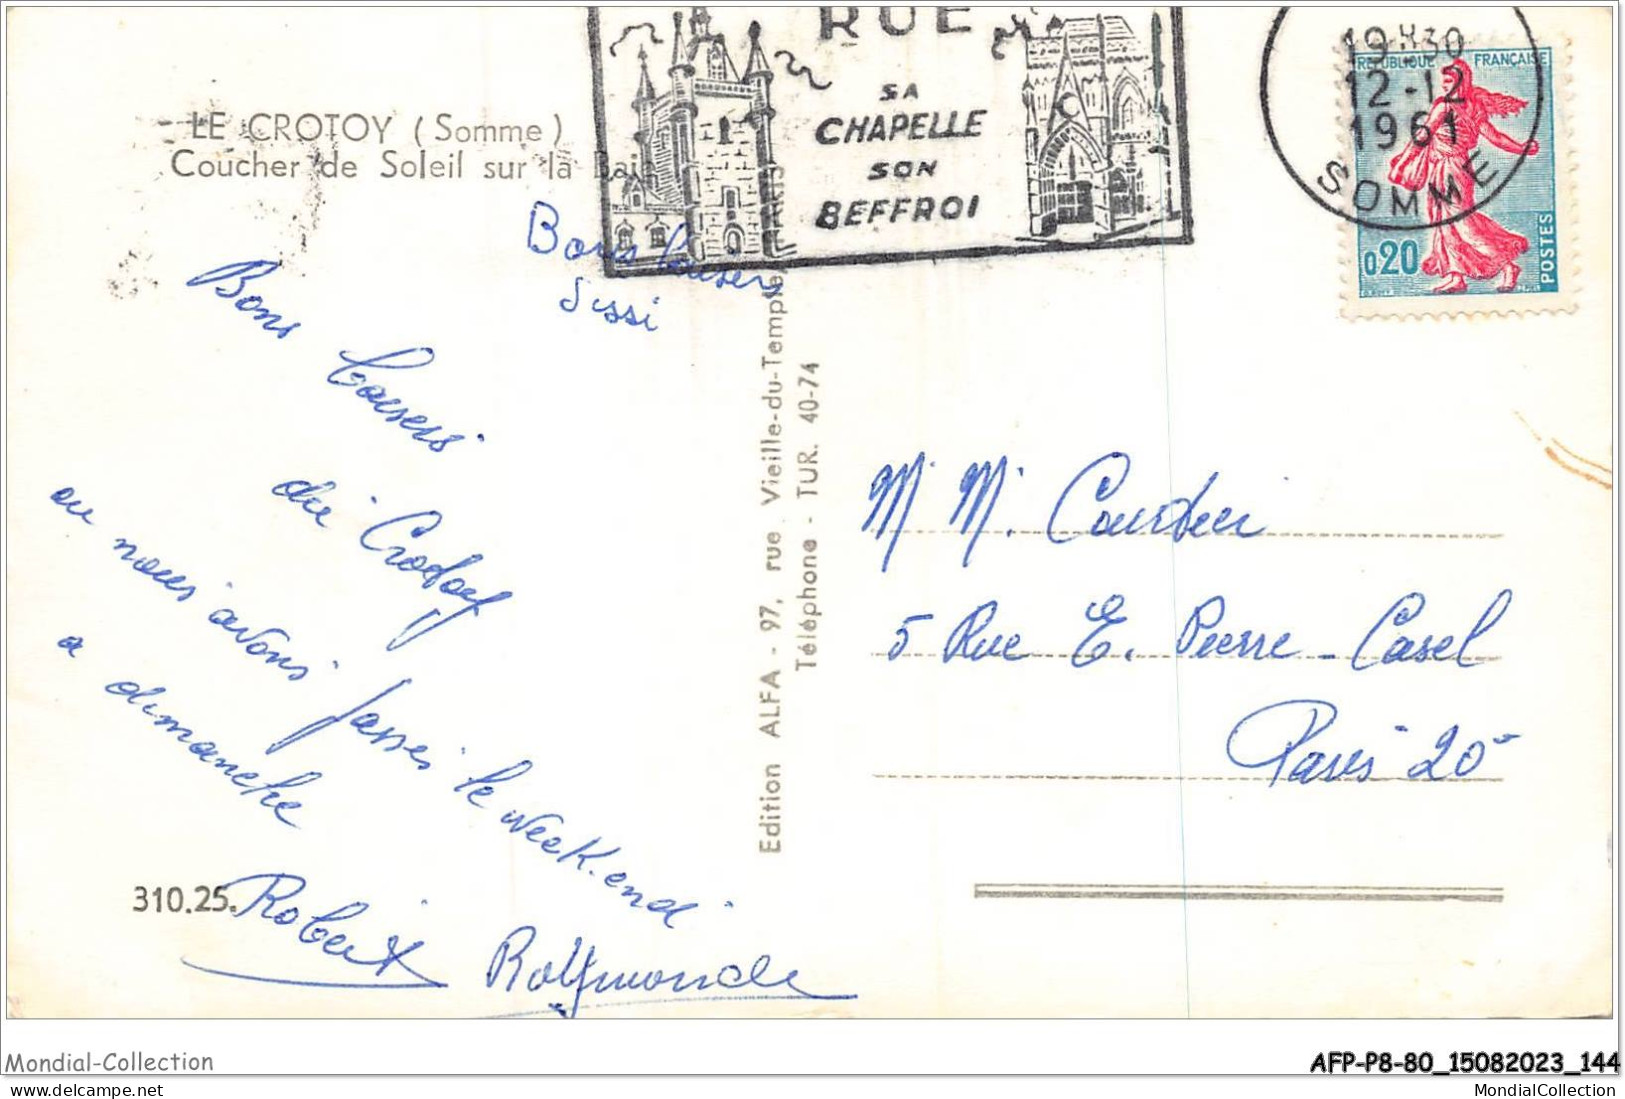 RUE
SA
CHAPELLE
SON
BEFFROI
19H30
12-12
1961
SOMME
REPUBLIQUE FRANÇAISE
0,20
POSTES
LE CROTOY (Somme)
Coucher de Soleil sur la Baie
Bons baisers
Sissi
Bons
baisers
du Crotoy
ou nous avons passer le week-end
a dimanche
Robert Raymonde
310.25.
Edition ALFA - 97, rue Vieille-du-Temple, PARIS
Téléphone - TUR. 40-74
M M.
5 Rue E. Pierre-Casel
Paris 20e
Mondial-Collection
AFP-P8-80_15082023_144
www.delcampe.net
MondialCollection